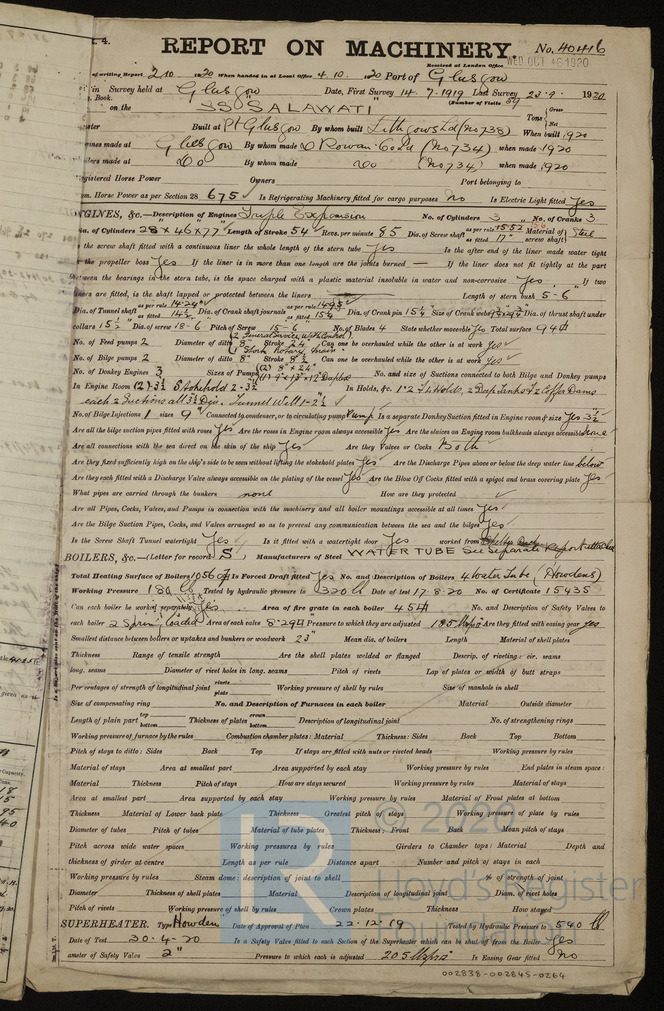 t. 4.
REPORT ON MACHINERY. No. 40416
Received at London Office WED OCT 6 1920
of writing Report 2.10. 1920 When handed in at Local Office 4.10. 1920 Port of Glasgow
in Survey held at Glasgow Date, First Survey 14.7.1919 Last Survey 23.9. 1920
Book. (Number of Visits 59
on the SS "SALAWATI" Tons { Gross Net
Built at Pt Glasgow By whom built Lithgows Ld (No 738) When built 1920
gines made at Glasgow By whom made D Rowan & Co Ld (No 734) when made 1920
ilers made at Do By whom made Do (No 734) when made 1920
gistered Horse Power Owners Port belonging to
om. Horse Power as per Section 28 675 Is Refrigerating Machinery fitted for cargo purposes No Is Electric Light fitted Yes
NGINES, &c.—Description of Engines Triple Expansion No. of Cylinders 3 No. of Cranks 3
ia. of Cylinders 28" x 46" x 77" Length of Stroke 54" Revs. per minute 85 Dia. of Screw shaft as per rule 15.52 as fitted 17" Material of screw shaft Steel
the screw shaft fitted with a continuous liner the whole length of the stern tube Yes Is the after end of the liner made water tight
the propeller boss Yes If the liner is in more than one length are the joints burned — If the liner does not fit tightly at the part
between the bearings in the stern tube, is the space charged with a plastic material insoluble in water and non-corrosive Yes If two
liners are fitted, is the shaft lapped or protected between the liners Length of stern bush 5-6"
Dia. of Tunnel shaft as per rule as fitted Dia. of Crank shaft journals as per rule as fitted 15¼ Dia. of Crank pin 15¼" Size of Crank webs Dia. of thrust shaft under
collars 15½" Dia. of screw 18-6 Pitch of Screw 15-6 No. of Blades 4 State whether moveable Yes Total surface 94 ft
No. of Feed pumps 2 Diameter of ditto 8" Stroke 24 Can one be overhauled while the other is at work Yes
No. of Bilge pumps 2 Diameter of ditto 8" Stroke Can one be overhauled while the other is at work Yes
No. of Donkey Engines 3 Sizes of Pumps (2) 8" x 24" (1) 9" x 13" x 12" Duplex No. and size of Suctions connected to both Bilge and Donkey pumps
In Engine Room (2) 3½ Stokehold 2-3½ In Holds, &c.
each 2 Suctions all 3½ Dia. Tunnel Well 1-2½
No. of Bilge Injections 1 sizes 9" Connected to condenser, or to circulating pump Pump Is a separate Donkey Suction fitted in Engine room & size Yes 3½
Are all the bilge suction pipes fitted with roses Yes Are the roses in Engine room always accessible Yes Are the sluices on Engine room bulkheads always accessible None
Are all connections with the sea direct on the skin of the ship Yes Are they Valves or Cocks Both
Are they fixed sufficiently high on the ship's side to be seen without lifting the stokehold plates Yes Are the Discharge Pipes above or below the deep water line below
Are they each fitted with a Discharge Valve always accessible on the plating of the vessel Yes Are the Blow Off Cocks fitted with a spigot and brass covering plate Yes
What pipes are carried through the bunkers none How are they protected
Are all Pipes, Cocks, Valves, and Pumps in connection with the machinery and all boiler mountings accessible at all times Yes
Are the Bilge Suction Pipes, Cocks, and Valves arranged so as to prevent any communication between the sea and the bilges Yes
Is the Screw Shaft Tunnel watertight Yes Is it fitted with a watertight door Yes worked from
BOILERS, &c.—(Letter for record S) Manufacturers of Steel WATER TUBE See Separate Report attached
Total Heating Surface of Boilers Is Forced Draft fitted Yes No. and Description of Boilers 4 Water Tube (Howdens)
Working Pressure 180 lb Tested by hydraulic pressure to 320 lb Date of test 17.8.20 No. of Certificate 15435
Can each boiler be worked separately Yes Area of fire grate in each boiler 45 ft No. and Description of Safety Valves to
each boiler 2 Spring Loaded Area of each valve 8.29 Pressure to which they are adjusted 185 lbs Are they fitted with easing gear Yes
Smallest distance between boilers or uptakes and bunkers or woodwork 23" Mean dia. of boilers Length Material of shell plates
Thickness Range of tensile strength Are the shell plates welded or flanged Descrip. of riveting: cir. seams
long. seams Diameter of rivet holes in long. seams Pitch of rivets Lap of plates or width of butt straps
Per centages of strength of longitudinal joint rivets plate Working pressure of shell by rules Size of manhole in shell
Size of compensating ring No. and Description of Furnaces in each boiler Material Outside diameter
Length of plain part top bottom Thickness of plates crown bottom Description of longitudinal joint No. of strengthening rings
Working pressure of furnace by the rules Combustion chamber plates: Material Thickness: Sides Back Top Bottom
Pitch of stays to ditto: Sides Back Top If stays are fitted with nuts or riveted heads Working pressure by rules
Material of stays Area at smallest part Area supported by each stay Working pressure by rules End plates in steam space:
Material Thickness Pitch of stays How are stays secured Working pressure by rules Material of stays
Area at smallest part Area supported by each stay Working pressure by rules Material of Front plates at bottom
Thickness Material of Lower back plate Thickness Greatest pitch of stays Working pressure of plate by rules
Diameter of tubes Pitch of tubes Material of tube plates Thickness: Front Back Mean pitch of stays
Pitch across wide water spaces Working pressures by rules Girders to Chamber tops: Material Depth and
thickness of girder at centre Length as per rule Distance apart Number and pitch of stays in each
Working pressure by rules Steam dome: description of joint to shell % of strength of joint
Diameter Thickness of shell plates Material Description of longitudinal joint Diam. of rivet holes
Pitch of rivets Working pressure of shell by rules Crown plates Thickness How stayed
SUPERHEATER. Type Howden Date of Approval of Plan 22.12.19 Tested by Hydraulic Pressure to 540 lb
Date of Test 30.4.20 Is a Safety Valve fitted to each Section of the Superheater which can be shut off from the Boiler Yes
ameter of Safety Valve 2" Pressure to which each is adjusted 205 lbs Is Easing Gear fitted No
002838-002845-0264
© 2020
Lloyd's Register
Foundation